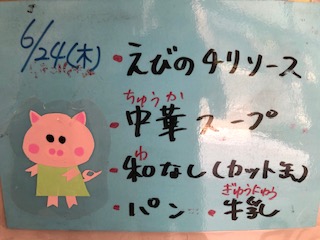 6/24(木)
・えびのチリソース
ちゅうか
・中華スープ
わ
・和なし(カット缶)
ぎゅうにゅう
・パン ・牛乳